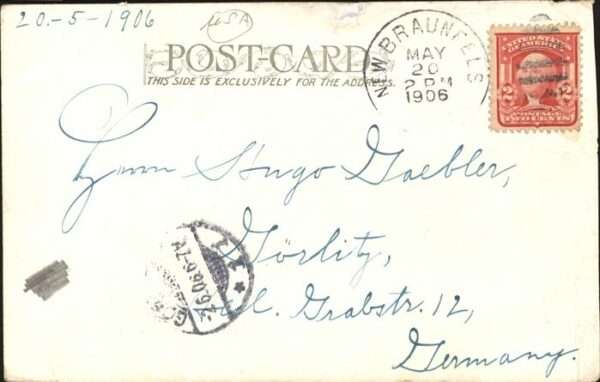 20.-5-1906
USA
POST-CARD
THIS SIDE IS EXCLUSIVELY FOR THE ADDRESS.
NEW BRAUNFELS
MAY
20
2 PM
1906
UNITED STATES
OF AMERICA
2 2
POSTAGE
TWO CENTS
Herrn Hugo Goebler,
Görlitz,
Grabstr. 12,
Germany.